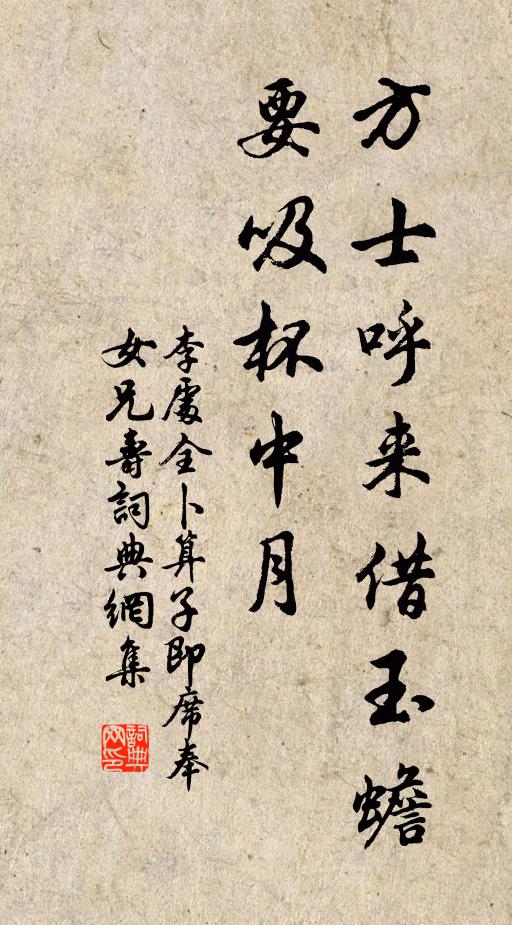 方士呼来借玉蟾
要吸杯中月
李處全卜算子即席奉
女兄壽詞典網集
詞典网印